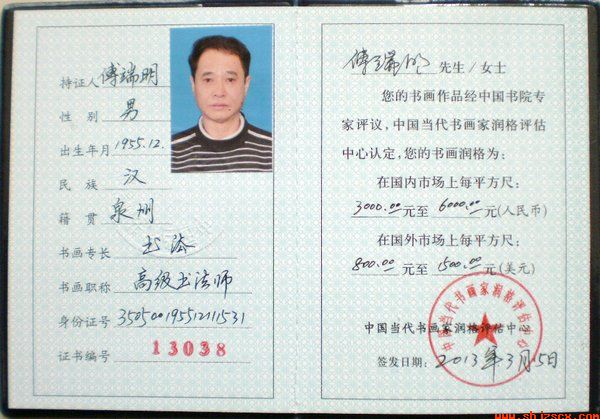 持证人 傅瑞明
性别 男
出生年月 1955.12.
民族 汉
籍贯 泉州
书画专长 书法
书画职称 高级书法师
身份证号 350500195512111531
证书编号 13038
傅瑞明 先生/女士
您的书画作品经中国书院专
家评议,中国当代书画家润格评估
中心认定,您的书画润格为:
在国内市场上每平方尺:
3000.00元至 6000.00元(人民币)
在国外市场上每平方尺:
800.00元至 1500.00元(美元)
中国当代书画家润格评估中心
中国当代书画家润格评估中心
签发日期: 2013年3月15日
www.shjzscx.com